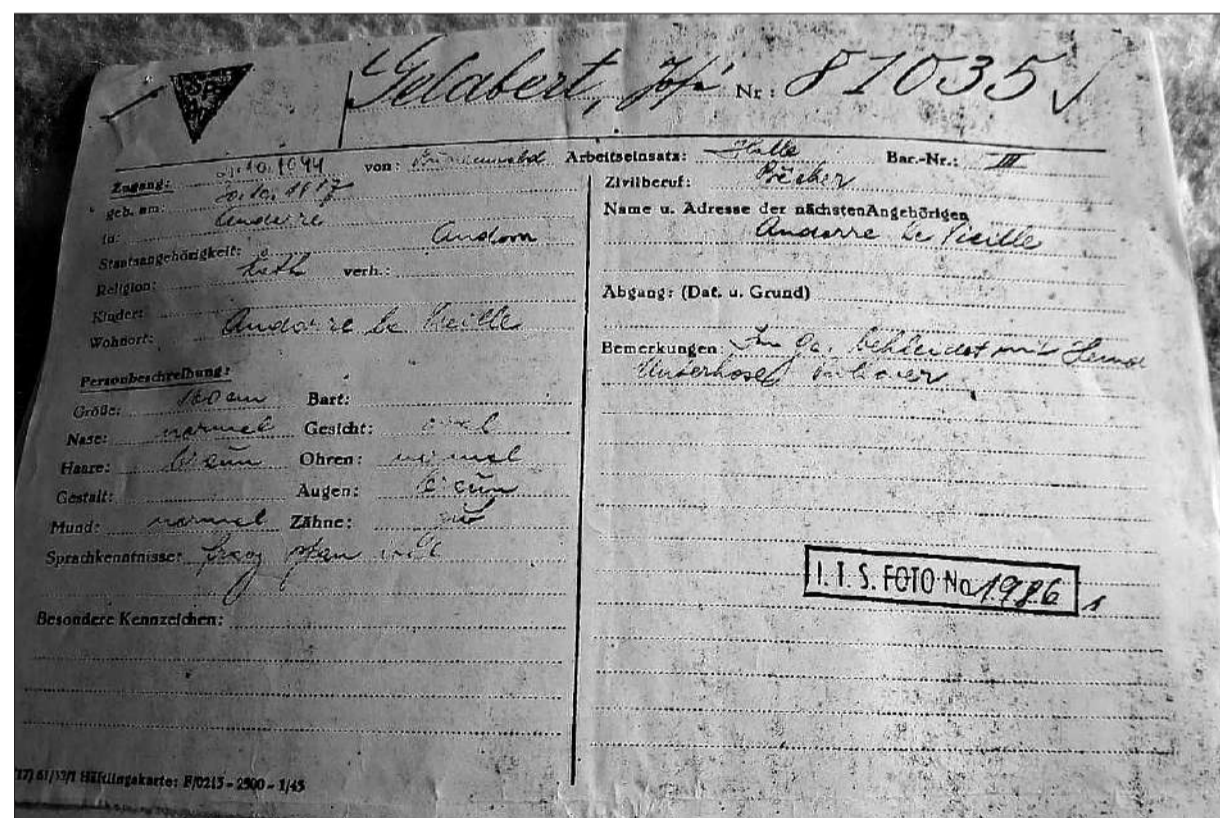 SP
Gelabert, Nr: 87035
Zugang: 10.1944 von: Arbeitseinsatz: Halle Bar.-Nr.: III
geb. am: 10.
in: Andorre
Staatsangehörigkeit: Andorr
Religion: kath verh.:
Kinder:
Wohnort: Andorre la Vieille
Personbeschreibung:
Größe: cm Bart:
Nase: normal Gesicht: oval
Haare: braun Ohren: normal
Gestalt: Augen: braun
Mund: normal Zähne: gut
Sprachkenntnisse: span
Besondere Kennzeichen:
(17) 61/ /1 Häftlingskarte: F/0213 - 2500 - 1/45
Zivilberuf:
Name u. Adresse der nächstenAngehörigen
Andorre la Vieille
Abgang: (Dat. u. Grund)
Bemerkungen: bekleidet mit Hemd
Unterhose,
I. T. S. FOTO No 1986